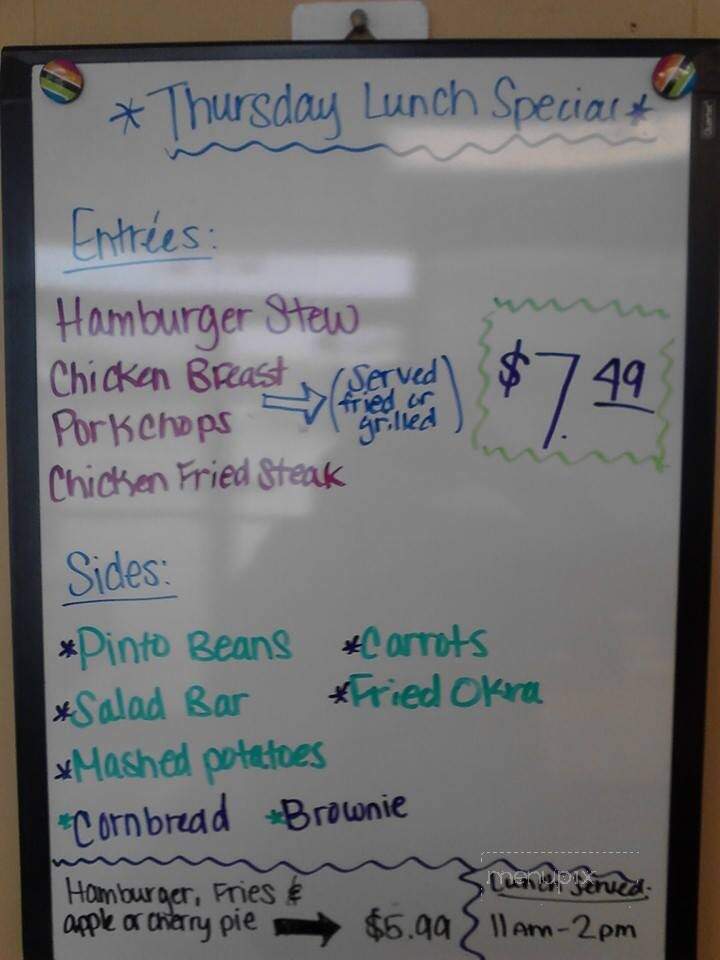 *Thursday Lunch Special*
Entrées:
Hamburger Stew
Chicken Breast
Porkchops
(Served
fried or
grilled)
Chicken Fried Steak
$7.49
Sides:
*Pinto Beans *Carrots
*Salad Bar *Fried Okra
*Mashed potatoes
*Cornbread *Brownie
Hamburger, Fries &
apple or cherry pie → $5.99
Lunch Served:
11am-2pm
menupix
Quartet